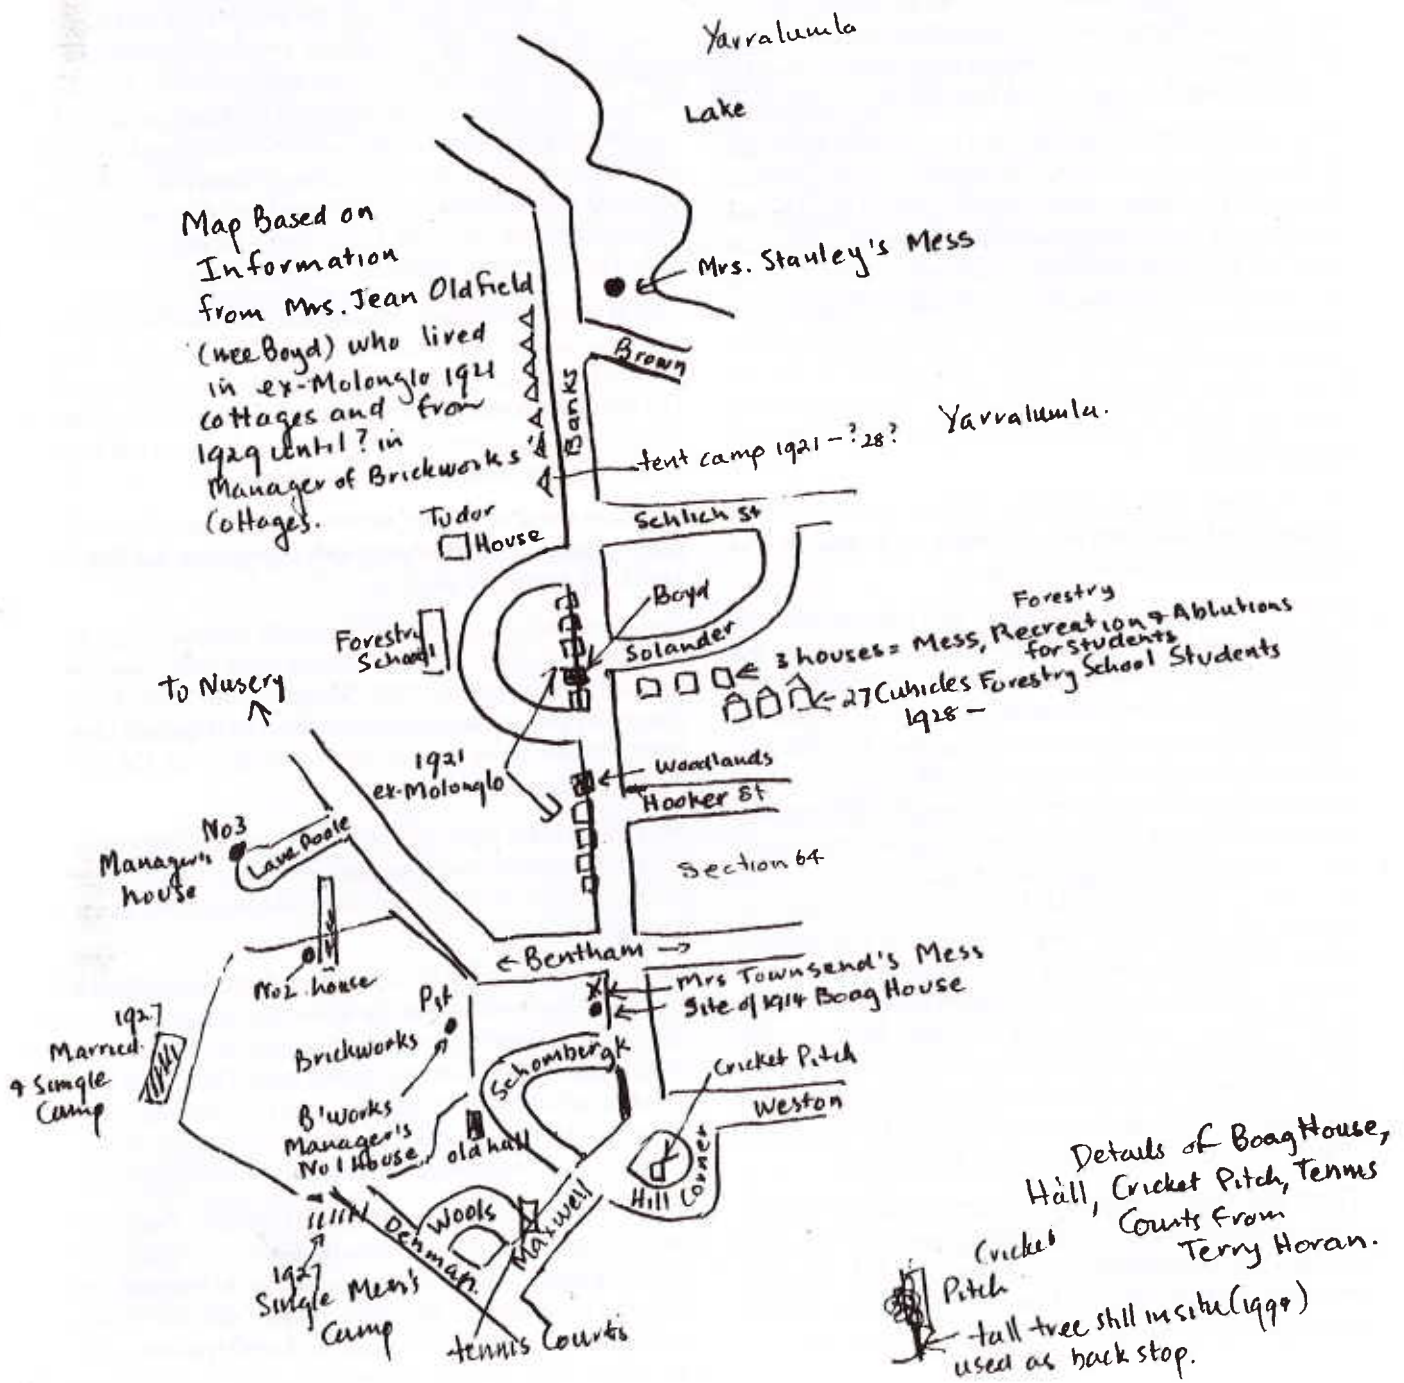 Yarralumla
Lake
Map Based on
Information
from Mrs. Jean Oldfield
(nee Boyd) who lived
in ex-Molonglo 1921
cottages and from
1929 until ? in
Manager of Brickworks'
Cottages.
Mrs. Stanley's Mess
Brown
Banks
Yarralumla.
tent camp 1921 - ?28?
Tudor
House
Schlich St
Boyd
Solander
Forestry
School
Forestry
3 houses = Mess, Recreation & Ablutions
for Students
27 Cubicles Forestry School Students
1928 -
To Nusery
1921
ex-Molonglo
Woodlands
Hooker St
Section 64
No3
Manager's
house
Lane Poole
No2 house
← Bentham →
Mrs Townsend's Mess
Site of 1914 Boag House
Pit
Brickworks
1927
Married
& Single
Camp
Schombergk
Cricket Pitch
Weston
B'works
Manager's
No 1 House
old hall
Hill Corner
Wools
Maxwell
Denman.
1927
Single Men's
Camp
tennis Courts
Details of Boag House,
Hall, Cricket Pitch, Tennis
Courts from
Terry Horan.
Cricket
Pitch
tall tree still in situ (1994)
used as back stop.